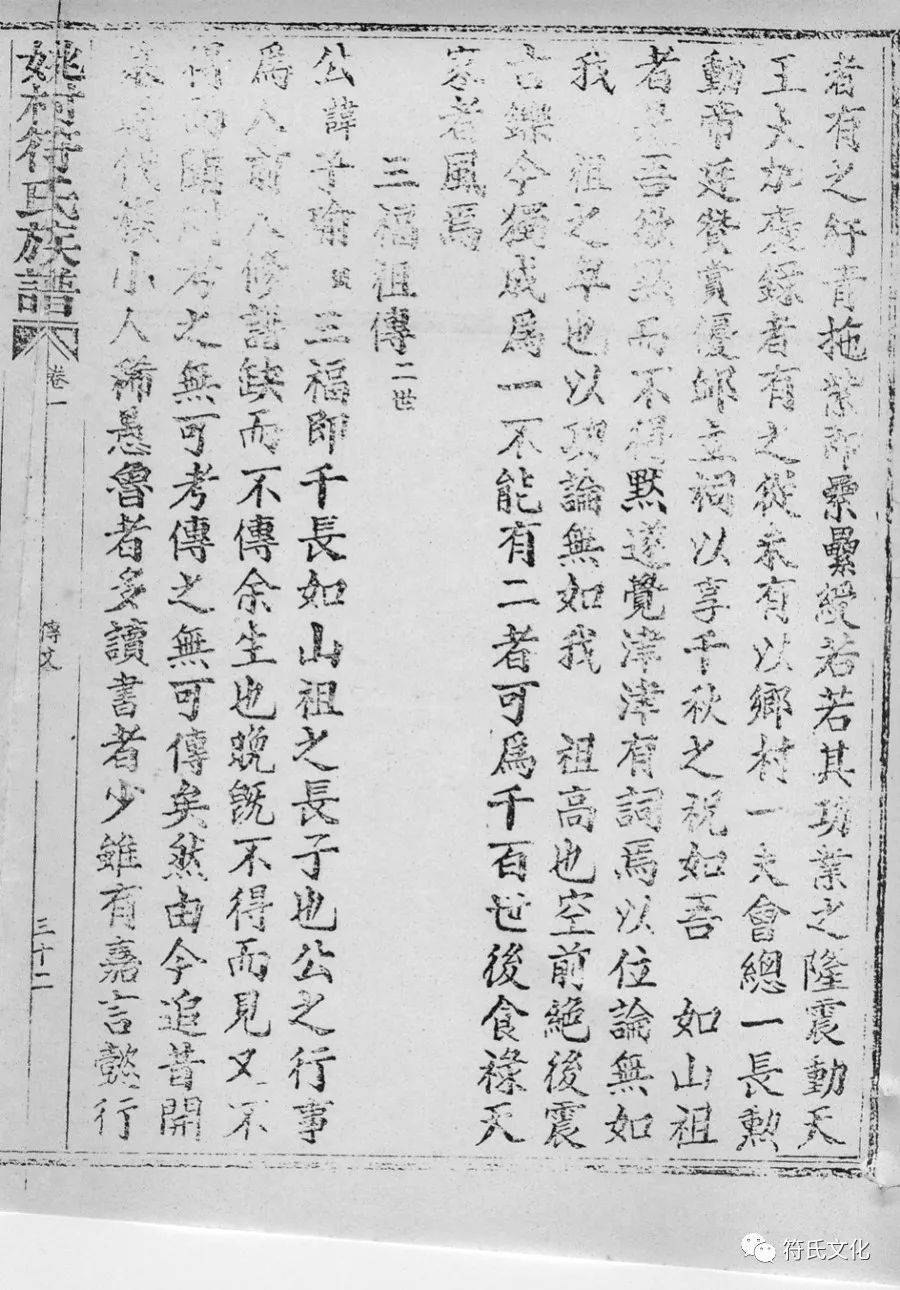 者有之紆青拖紫印纍纍綬若若其功業之隆震動天
王大加褒錄者有之從未有以鄉村一夫會總一長勲
動帝廷贊賞優邺立祠以享千秋之祝如吾 如山祖
者是吾欲然而不得默遂覺津津有詞焉以位論無如
我 祖之卑也以功論無如我 祖高也空前絶後震
古鑠今獨成爲一不能有二者可爲千百世後食祿天
家者風焉
三福祖傳二世
公諱子 號三福即千長如山祖之長子也公之行事
爲人前人修譜缺而不傳余生也晚旣不得而見又不
得而聞則考之無可考傳之無可傳矣然由今追昔開
基時代族小人稀愚魯者多讀書者少雖有嘉言懿行
姚村符氏族譜
卷一
傳文
三十二
符氏文化